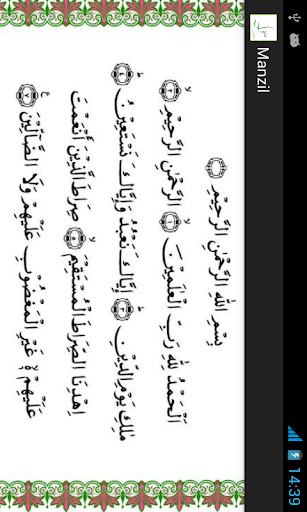 Manzil
بِسْمِ اللهِ الرَّحْمٰنِ الرَّحِيْمِ
اَلْحَمْدُ لِلّٰهِ رَبِّ الْعٰلَمِيْنَ ۝١ الرَّحْمٰنِ الرَّحِيْمِ ۝٢
مٰلِكِ يَوْمِ الدِّيْنِ ۝٣ اِيَّاكَ نَعْبُدُ وَاِيَّاكَ نَسْتَعِيْنُ ۝٤
اِهْدِنَا الصِّرَاطَ الْمُسْتَقِيْمَ ۝٥ صِرَاطَ الَّذِيْنَ اَنْعَمْتَ
عَلَيْهِمْ غَيْرِ الْمَغْضُوْبِ عَلَيْهِمْ وَلَا الضَّآلِّيْنَ ۝٧
14:39